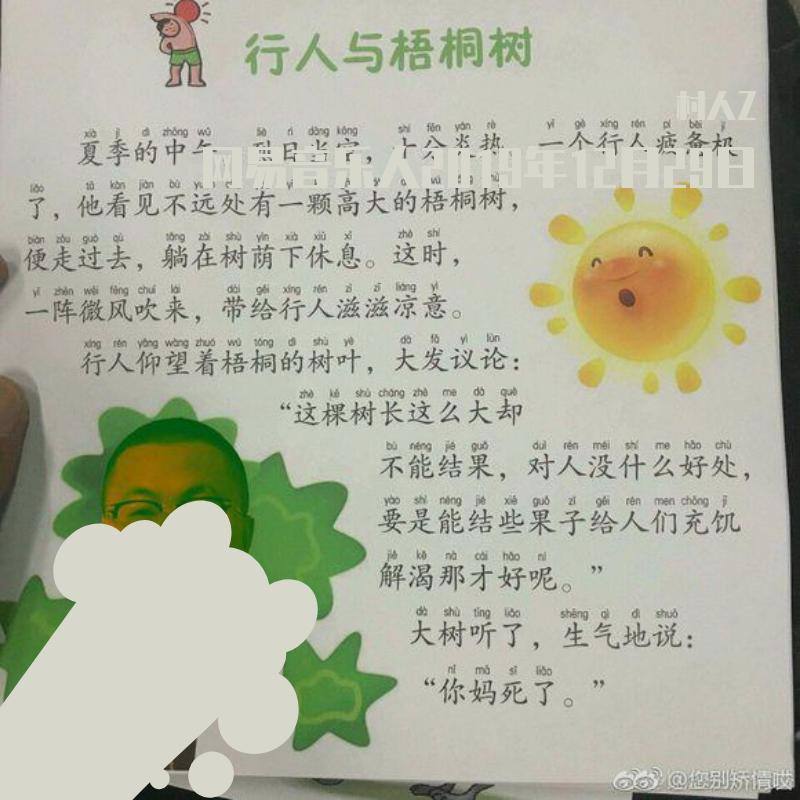 行人与梧桐树
村人Z
xià jì dì zhōng wǔ liè rì dāng kōng shí fēn yán rè yī gè xíng rén pí bèi jí
夏季的中午，烈日当空，十分炎热，一个行人疲备极
网易音乐人2019年12月29日
liǎo tā kàn jiàn bù yuǎn
了，他看见不远处有一颗高大的梧桐树，
biàn zǒu guò qù tǎng zài shù yìn xià xiū xī zhè shí
便走过去，躺在树荫下休息。这时，
yī zhèn wēi fēng chuī lái dài gěi xíng rén zī zī liáng yì
一阵微风吹来，带给行人滋滋凉意。
xíng rén yǎng wàng zhuó wú tóng dì shù yè dà fā yì lùn
行人仰望着梧桐的树叶，大发议论：
zhè kē shù cháng zhè me dà què
“这棵树长这么大却
bù néng jié guǒ duì rén méi shí me hǎo chù
不能结果，对人没什么好处，
yào shì néng jié xiē guǒ zǐ gěi rén men chōng jī
要是能结些果子给人们充饥
jiě kě nà cái hǎo ní
解渴那才好呢。”
dà shù tīng liǎo shēng qì dì shuō
大树听了，生气地说：
nǐ mā sǐ liǎo
“你妈死了。”
@您别矫情哎